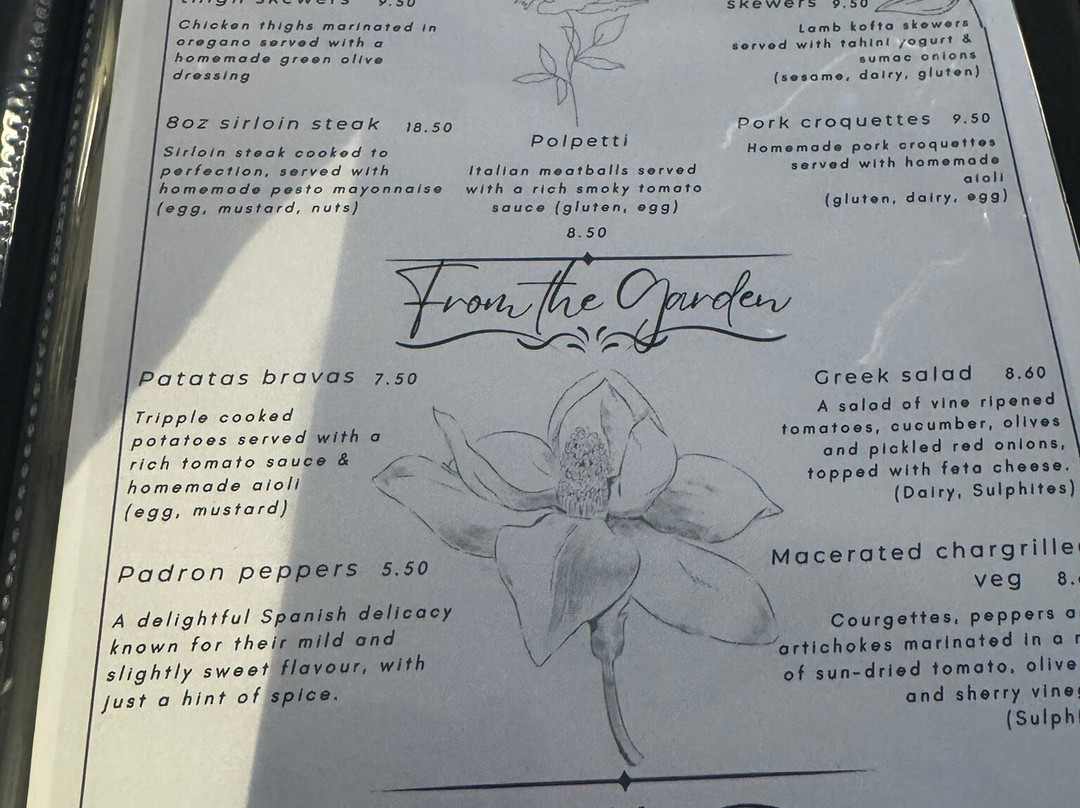 thigh skewers 9.50
Chicken thighs marinated in
oregano served with a
homemade green olive
dressing
8oz sirloin steak 18.50
Sirloin steak cooked to
perfection, served with
homemade pesto mayonnaise
(egg, mustard, nuts)
Polpetti
Italian meatballs served
with a rich smoky tomato
sauce (gluten, egg)
8.50
skewers 9.50
Lamb kofta skewers
served with tahini yogurt &
sumac onions
(sesame, dairy, gluten)
Pork croquettes 9.50
Homemade pork croquettes
served with homemade
aioli
(gluten, dairy, egg)
From the Garden
Patatas bravas 7.50
Tripple cooked
potatoes served with a
rich tomato sauce &
homemade aioli
(egg, mustard)
Padron peppers 5.50
A delightful Spanish delicacy
known for their mild and
slightly sweet flavour, with
just a hint of spice.
Greek salad 8.60
A salad of vine ripened
tomatoes, cucumber, olives
and pickled red onions,
topped with feta cheese.
(Dairy, Sulphites)
Macerated chargrille
veg 8.
Courgettes, peppers a
artichokes marinated in a
of sun-dried tomato, olive
and sherry vine
(Sulph